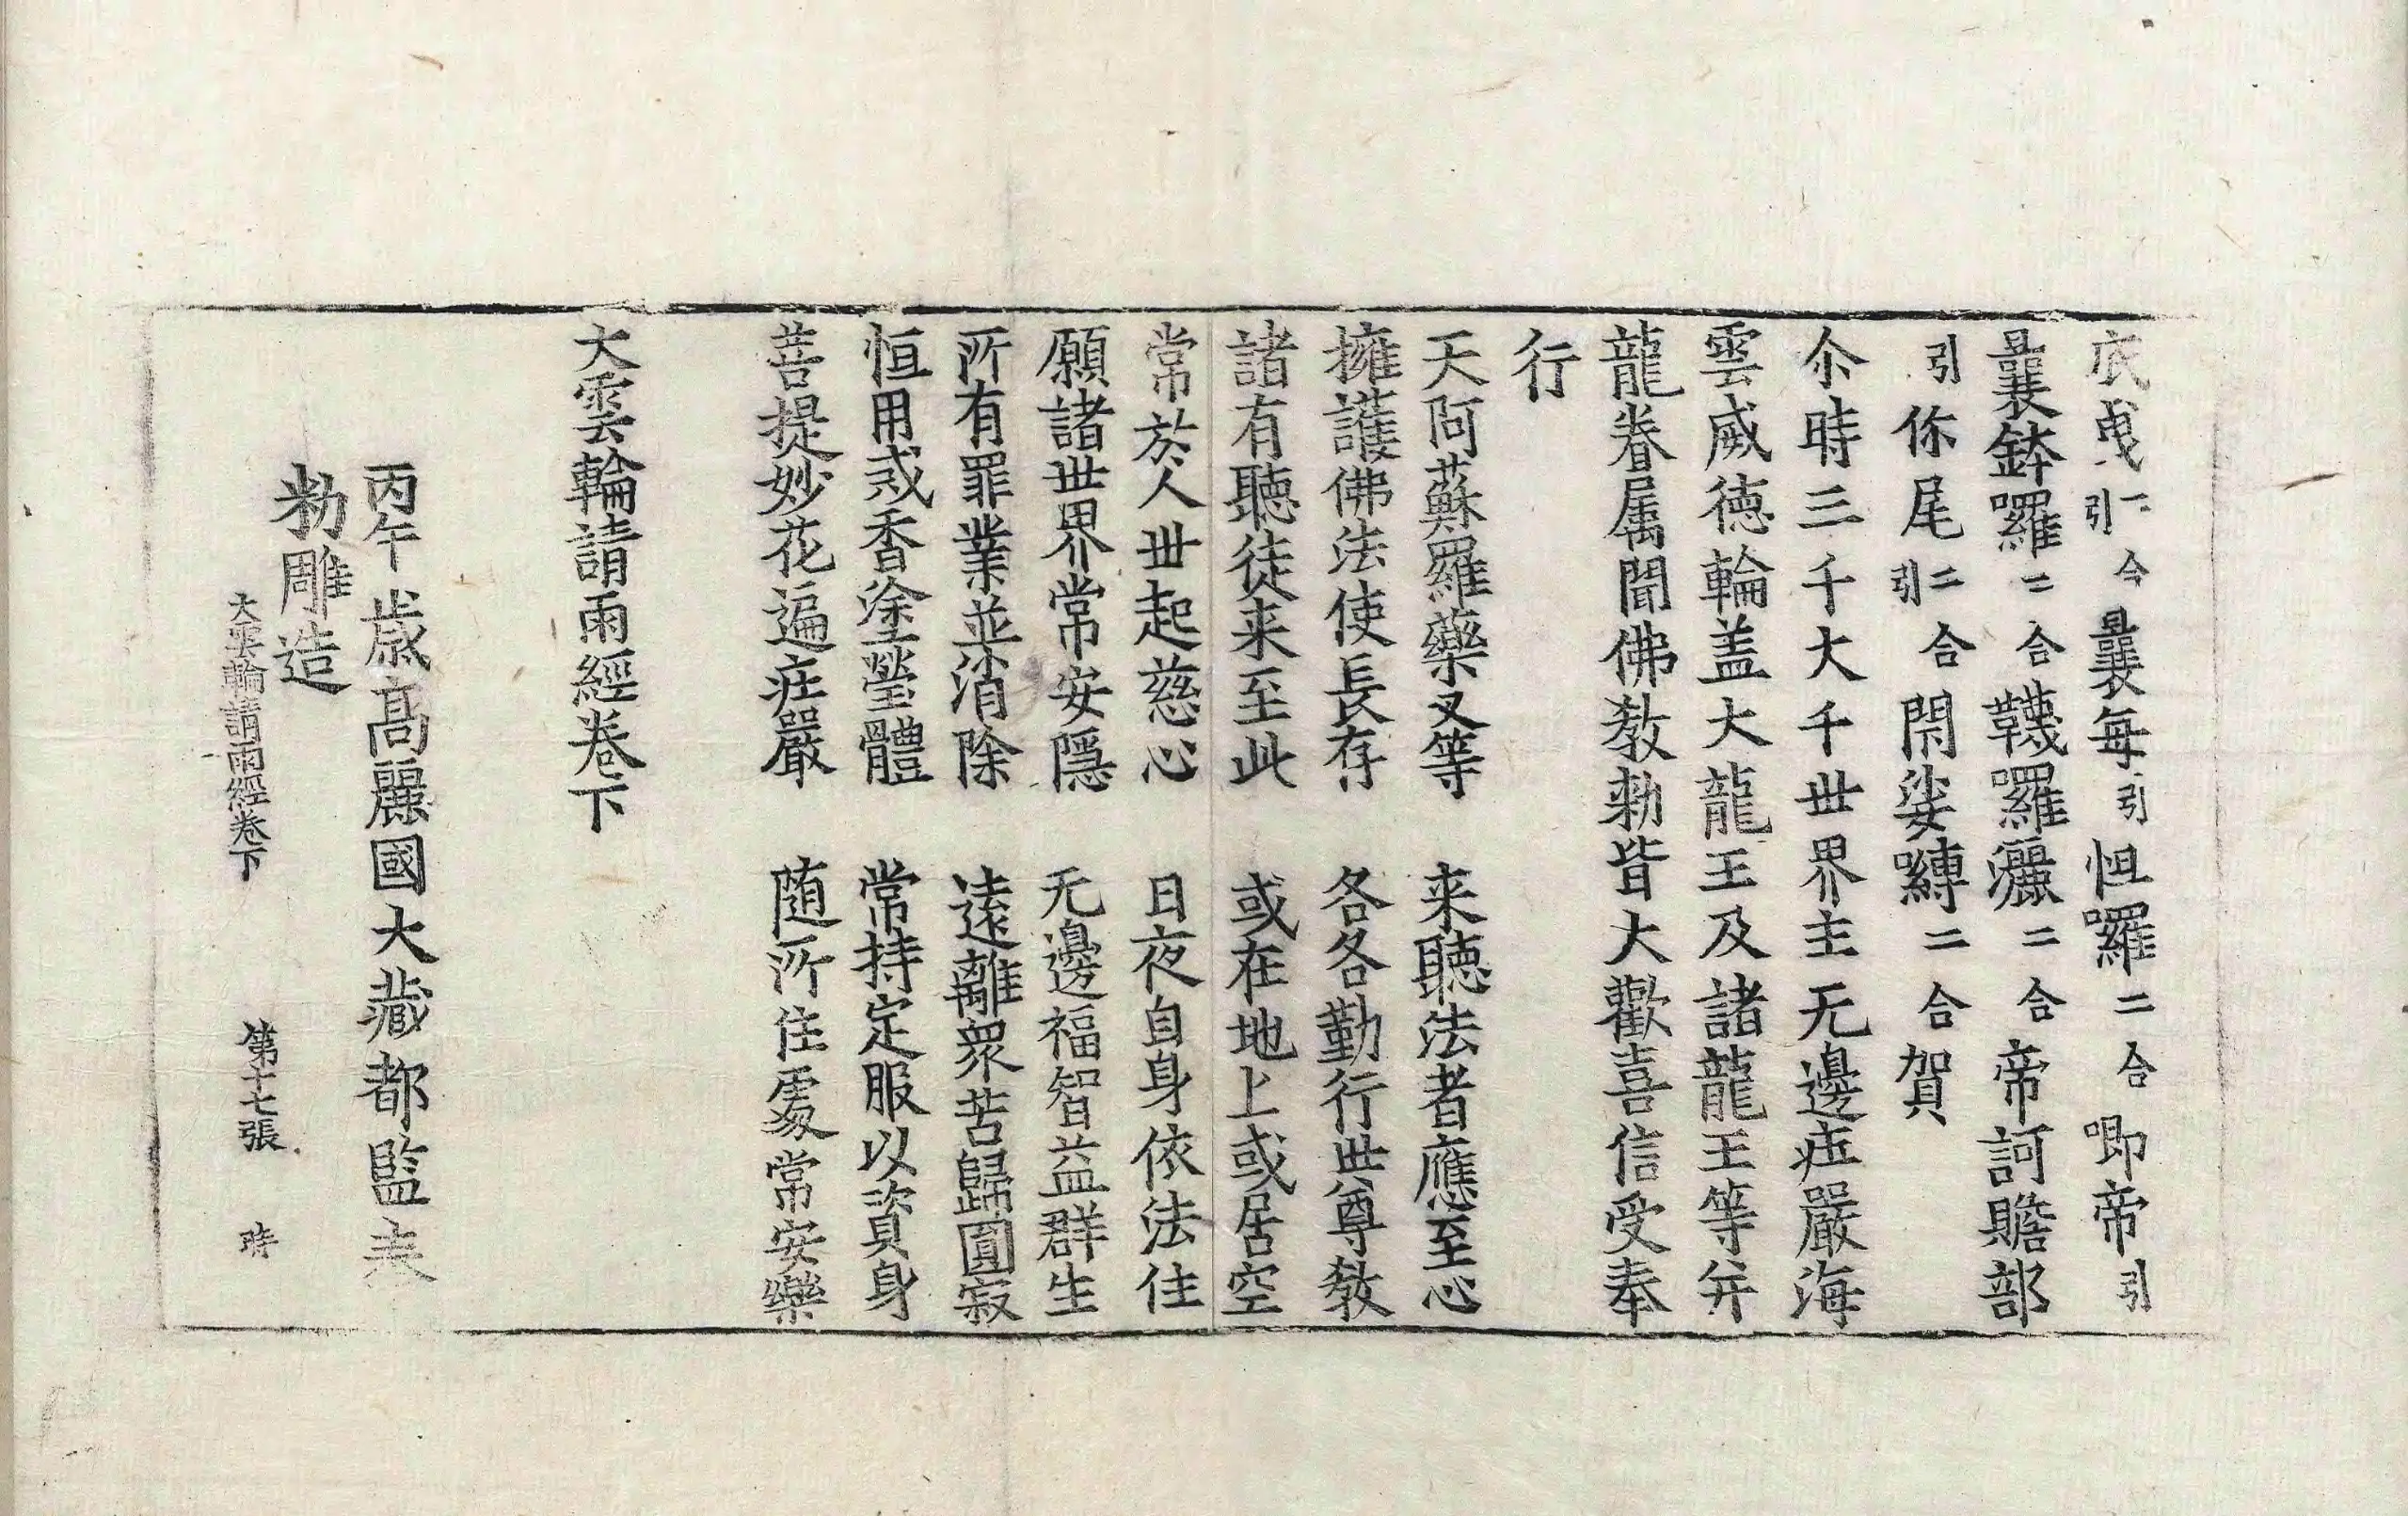 底曳二合引曩每引怛囉二合唧帝引
曩鉢囉二合韈囉灑二合帝訶贍部
引你尾二合引閇娑嚩二合賀
尒時三千大千世界主无邊㽵嚴海
雲威德輪盖大龍王及諸龍王等并
龍眷属聞佛教勑皆大歡喜信受奉
行
天阿蘇羅藥叉等　来聽法者應至心
擁護佛法使長存　各各勤行世尊教
諸有聽徒来至此　或在地上或居空
常於人世起慈心　日夜自身依法住
願諸世界常安隱　无邊福智益群生
所有罪業並消除　遠離衆苦歸圓寂
恒用戒香塗瑩體　常持定服以資身
菩提妙花遍㽵嚴　随所住處常安樂
大雲輪請雨經卷下
丙午歳髙麗國大藏都監奉
勑雕造
大雲輪請雨經卷下　第十七張　時